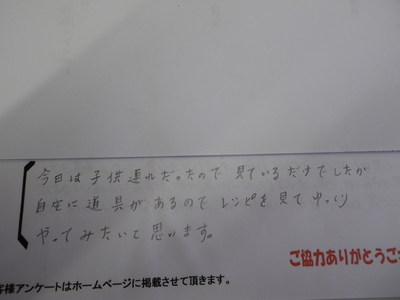 今日は子供連れだったので見ているだけでしたが
自宅に道具があるのでレシピを見てゆっくり
やってみたいと思います。
ご協力ありがとうご
客様アンケートはホームページに掲載させて頂きます。